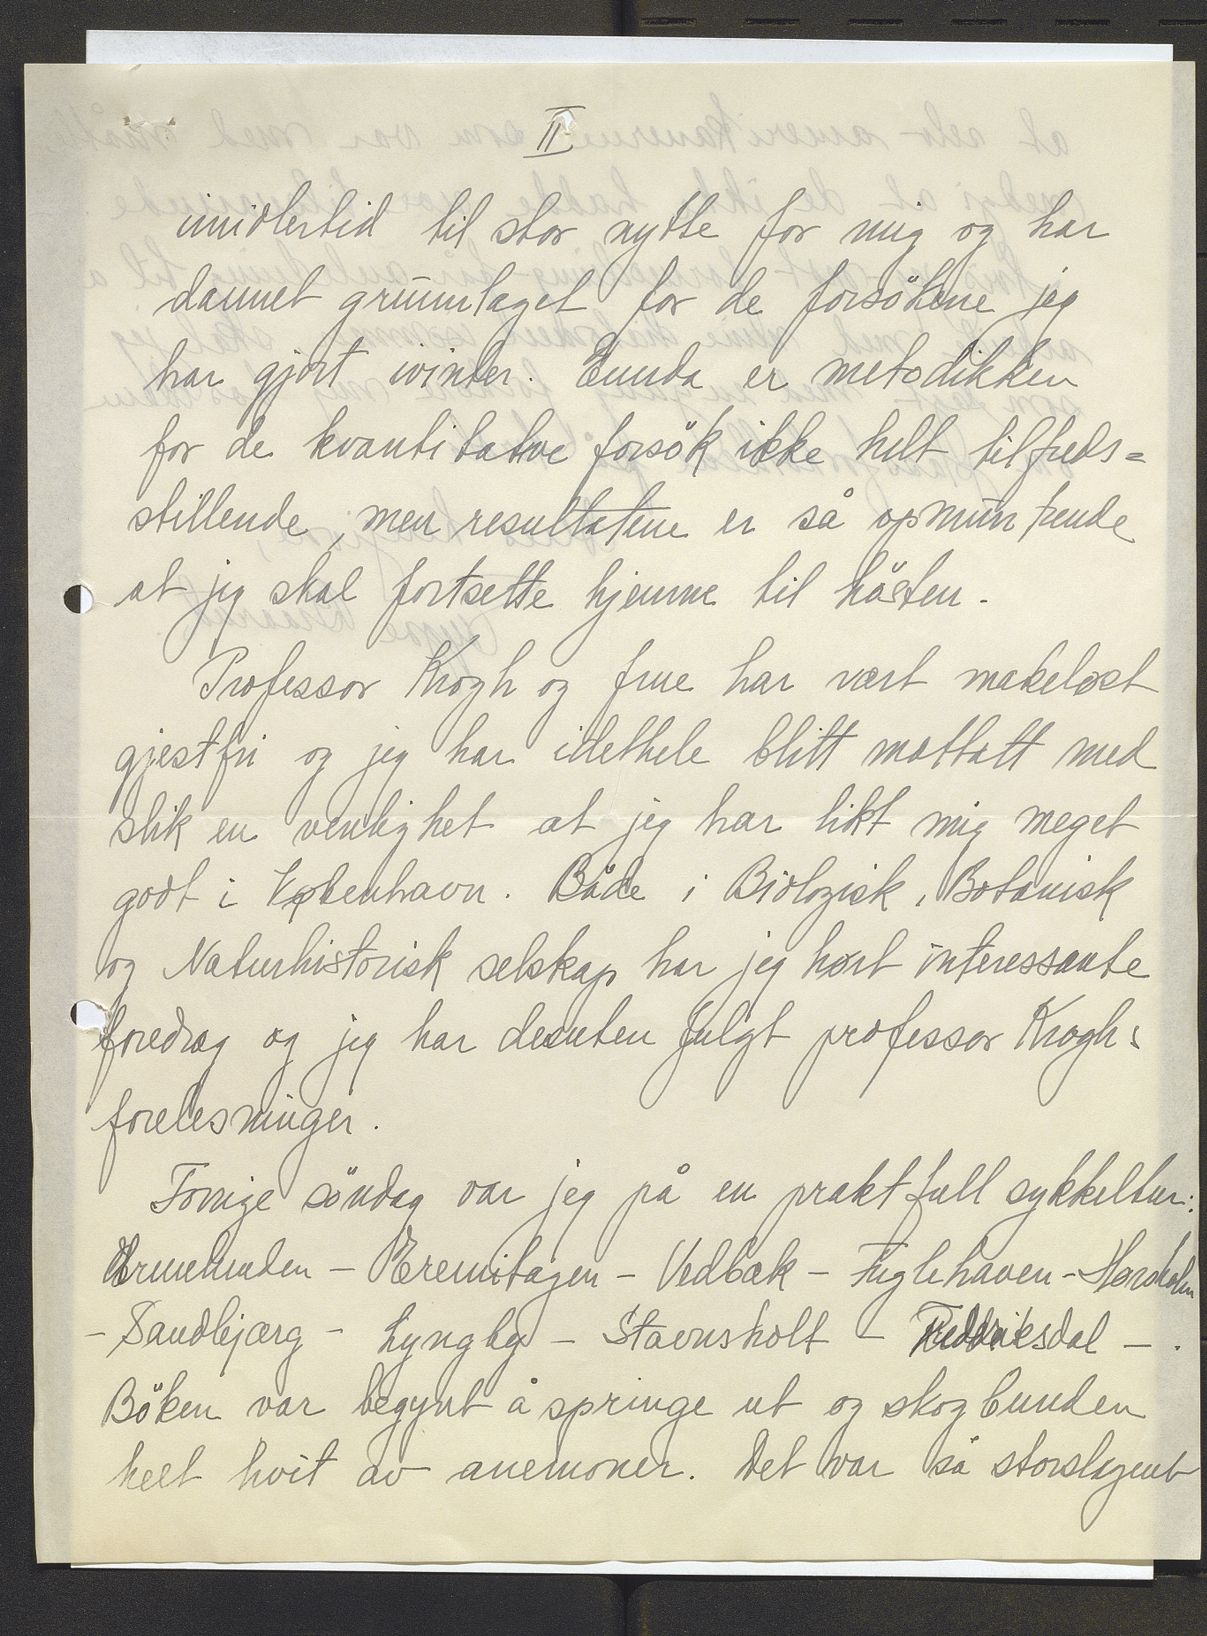 II
imidlertid til stor nytte for mig og har
dannet grunnlaget for de forsökene jeg
har gjort ivinter. Ennda er metodikken
for de kvantitative forsök ikke helt tilfreds=
stillende, men resultatene er så opmuntrende
at jeg skal fortsette hjemme til hösten.
Professor Krogh og frue har vært makelöst
gjestfri og jeg har idethele blitt mottatt med
slik en venlighet at jeg har likt mig meget
godt i København. Både i Biologisk, Botanisk
og Naturhistorisk selskap har jeg hört interessante
foredrag og jeg har desuten fulgt professor Kroghs
forelesninger.
Forrige söndag var jeg på en praktfull sykkeltur:
Ermelunden - Eremitagen - Vedbæk - Fuglehaven - Hørsholm
- Sandbjærg - Lyngby - Stavnsholt - Fredriksdal - .
Böken var begynt å springe ut og skogbunden
helt hvit av anemoner. Det var så storslagent